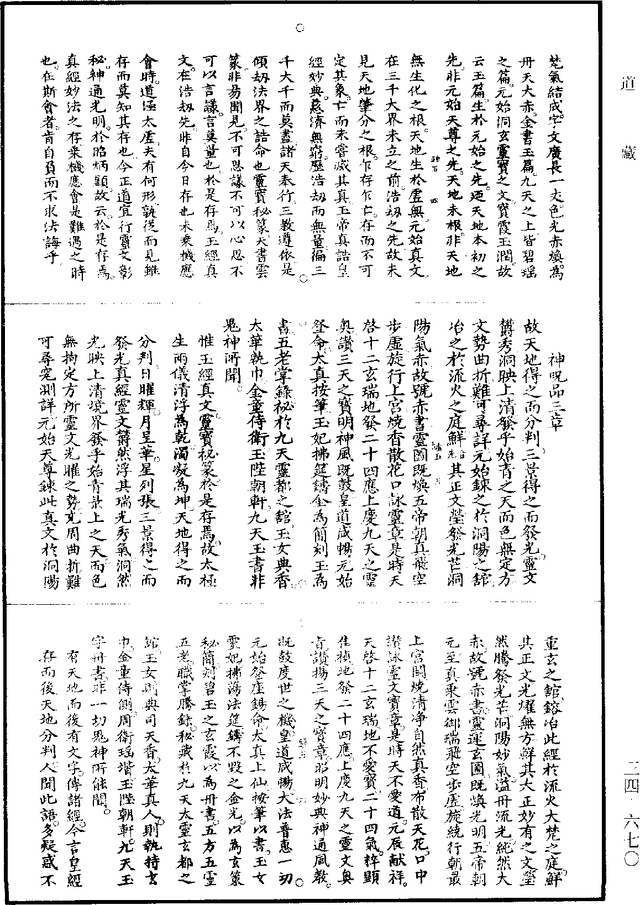 道藏
梵氣結成字文廣長一丈色光赤煥為
丹天大赤金書玉篇九天之上皆碧瑤
之篇元始洞玄靈寶之文寶霞玉潤故
云玉篇生於元始之先迺天地本初之
先非元始天尊之先天地未根非天地
無生化之根天地生於虛無元始真文
在三千大界未立之前浩劫之先故未
見天地肇分之根乍存乍亡存而不可
定其象亡而未嘗滅其真玉帝真誥皇
經妙典慈濟無窮歷浩劫而無量徧三
千大千而莫盡諸天奉行三教遵依是
傾劫法界之誥命也靈寶秘篆天書雲
篆非易聞見不可思議不可以心思不
可以言議言莫量也於是存焉玉經真
文在浩劫先非自今日存也未乘機應
會時道湛太虛夫有何形孰從而見雖
存而莫知其存也今正道宜行靈文彰
秘神通光明於昭炳顯故云於是存焉
真經妙法之存乘機應會是難遇之時
也在斯會者肯自負而不求法誨乎
神呪品三章
故天地得之而分判三景得之而發光靈文
欝秀洞映上清發乎始青之天而色無定方
文勢曲折難可尋詳元始鍊之於洞陽之舘
冶之於流火之庭鮮其正文瑩發光芒洞
陽氣赤故號赤書靈圖既煥五帝朝真飛空
步虛旋行上宮燒香散花口詠靈章是時天
啓十二玄瑞地發二十四應上慶九天之靈
奥讚三天之寶明神風既鼓皇道咸暢元始
登命太真按筆玉妃拂筵鑄金為簡刻玉為
書五老掌錄秘於九天靈都之舘玉女典香
太華執巾金童侍衛玉陛朝軒九天玉書非
鬼神所聞
惟玉經真文靈寶秘篆於是存焉故太極
生兩儀清浮為乾濁凝為坤天地得之而
分判日曜輝月呈華星列張三景得之而
發光真經靈文欝然浮其瑞光秀氣洞然
光映上清境界發乎始青最上之天而色
無拘定方所靈文光曜之勢宛周曲折難
可尋究測詳元始天尊鍊此真文於洞陽
重玄之舘鎔冶此經於流火大梵之庭鮮
其正文光耀無方鮮其大正妙有之文瑩
然騰發光芒洞陽妙氣溢丹流光純然大
赤故號赤書靈運玄圖既煥光明五帝朝
元至真乘雲御瑞飛空步虛旋繞行朝最
上宮闕燒清浄自然真香布散天花口中
讚詠靈文寶章是時天不愛道元辰献祥
天啓十二玄瑞地不愛寶二十四氣粹顯
佳禎地發二十四應上慶九天之靈文奥
旨讚揚三天之寶章昭明妙典神通風教
既鼓度世之機皇道咸暢大法普惠一切
元始登座錫命太真上仙按筆以書玉女
靈妃拂蕩法筵鑄不毀之金光以為玄篆
秘簡刻碧玉之玄霞以為丹書五方五靈
五老職掌騰錄秘藏於九天太靈玄都之
舘玉女則典司天香太華真人則執持玄
巾金童侍側周衛瑶堦玉陛朝軒九天玉
字丹書非一切鬼神所能聞
有天地而後有文字傳諸經今言皇經
存而後天地分判人聞此語多疑惑不
三四六七〇